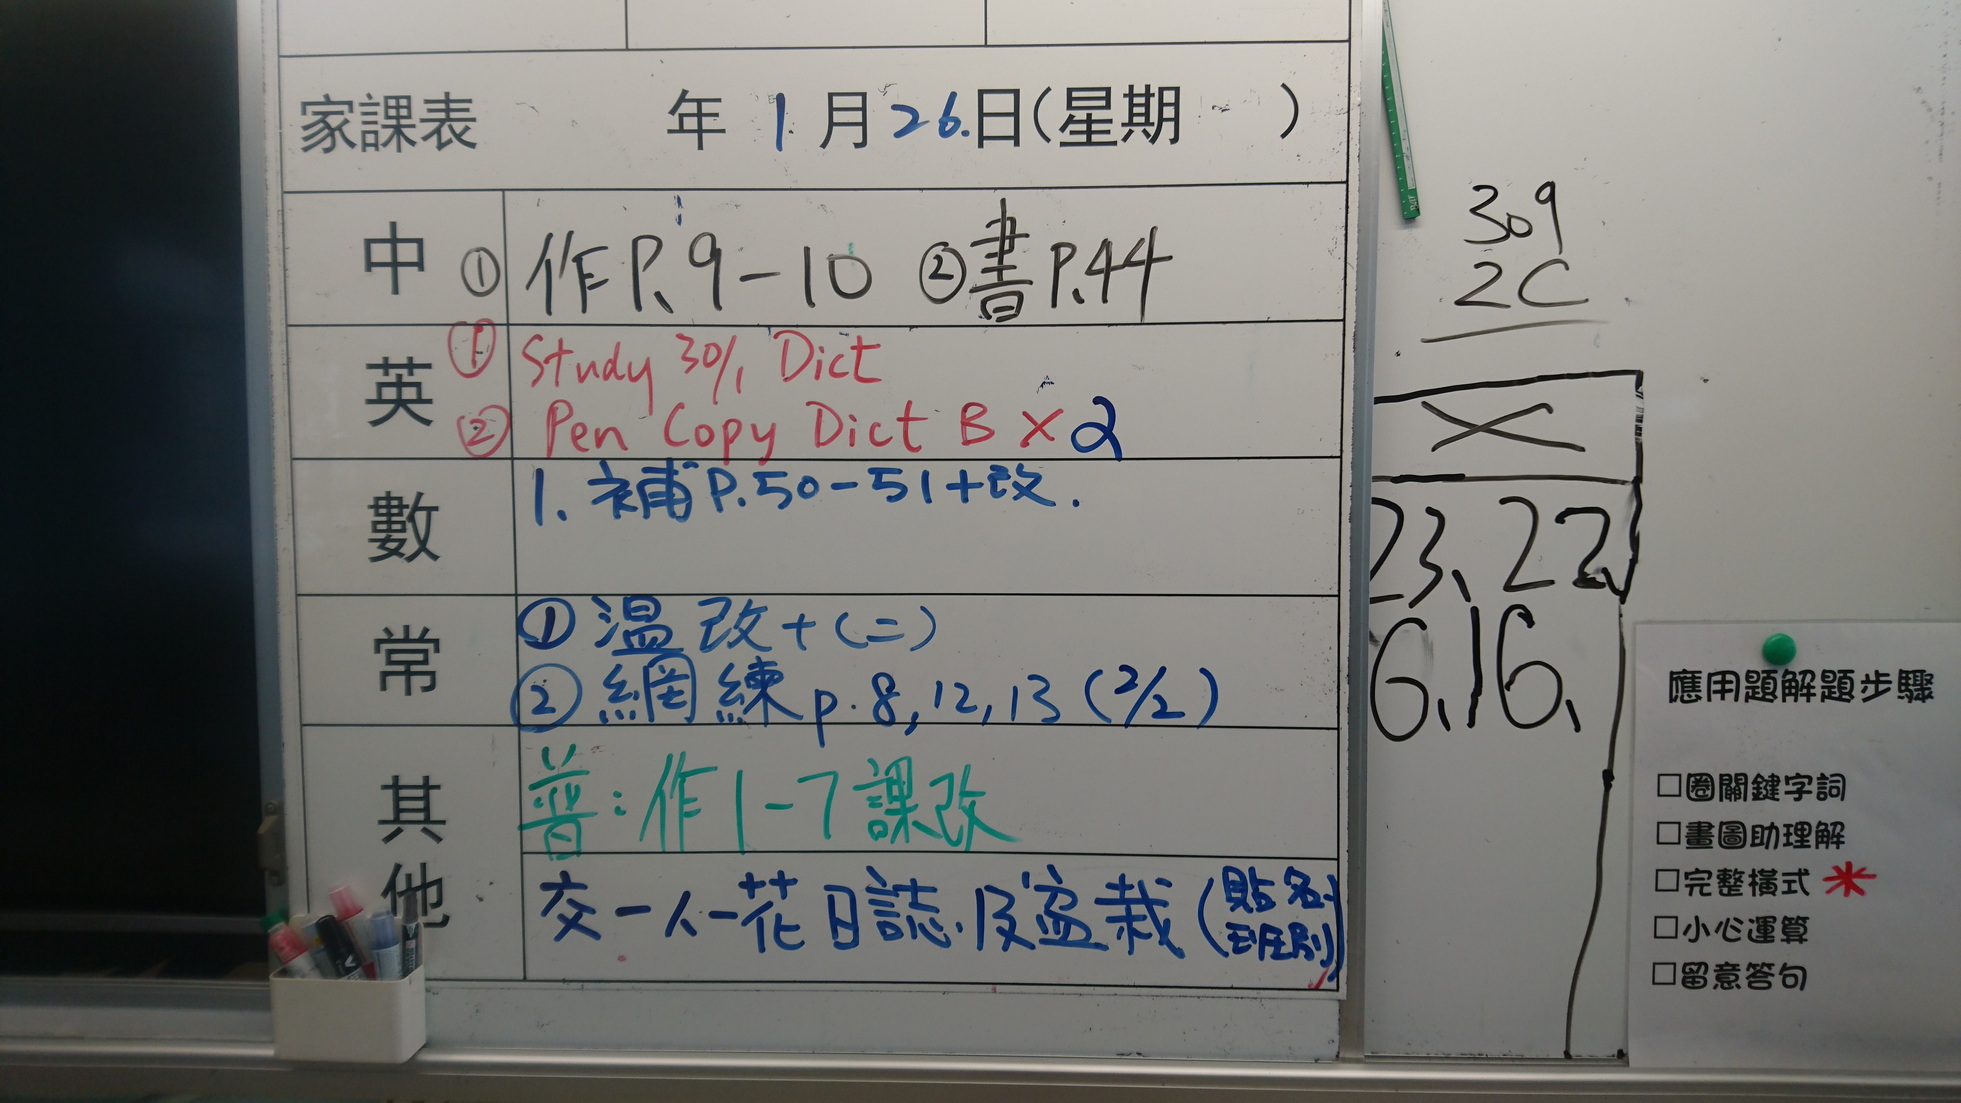 家課表 年 1 月 26 日(星期 )
中 ① 作 P.9-10 ② 書 P.44
英 ① Study 30/1 Dict
② Pen Copy Dict B × 2
數 1. 補 P.50-51+改.
常 ① 溫 改+(二)
② 網練 p.8, 12, 13 (2/2)
其他 普:作 1-7 課改
交一人一花日誌及盆栽(貼名,班別)
309
2C
23、22
6、16、
應用題解題步驟
□圈關鍵字詞
□畫圖助理解
□完整橫式
□小心運算
□留意答句